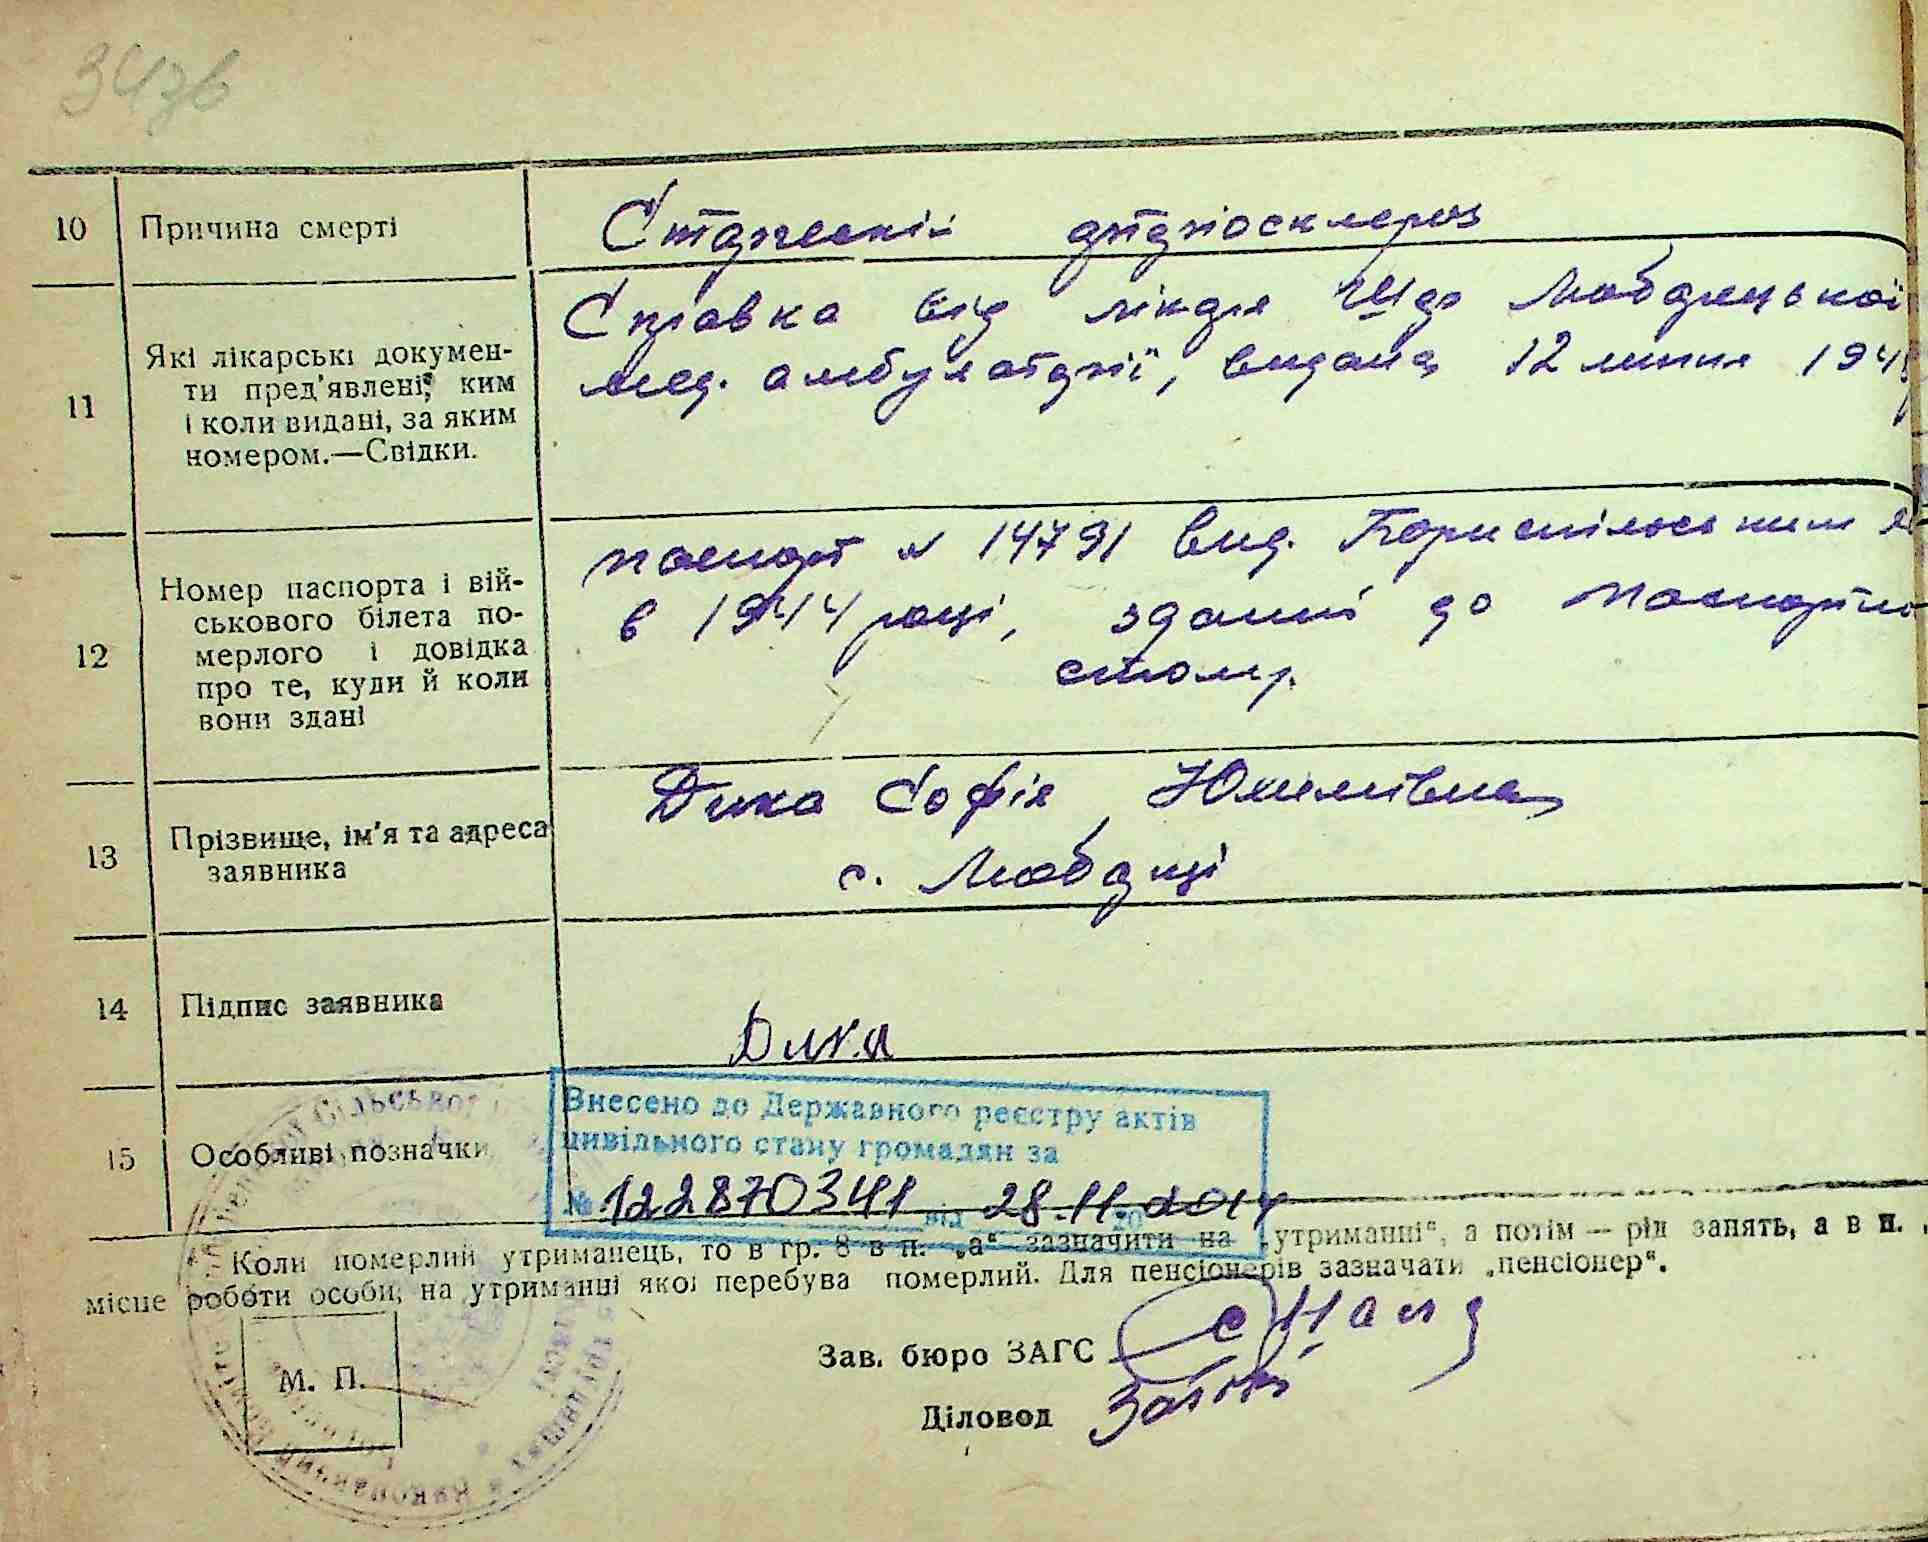 347зв
10 Причина смерті Старческий атеросклероз
11 Які лікарські докумен-
ти пред'явлені, ким
і коли видані, за яким
номером.—Свідки.
Справка від лікаря Любарецької
мед. амбулаторії, видана 12 липня 194
12 Номер паспорта і вій-
ськового білета по-
мерлого і довідка
про те, куди й коли
вони здані
паспорт № 14791 вид. Бориспільським
в 1944 році, зданий до паспортно
столу.
13 Прізвище, ім'я та адреса
заявника
Дика Софія Юхимівна
с. Любарці
14 Підпис заявника Дика
15 Особливі позначки
Внесено до Державного реєстру актів
цивільного стану громадян за
№ 1228703411 від 28.11.2014
Коли померлий утриманець, то в гр. 8 в п. „а“ зазначити на „утриманні“, а потім — рід занять, а в п.
місце роботи особи, на утриманні якої перебува померлий. Для пенсіонерів зазначати „пенсіонер“.
Зав. бюро ЗАГС
Діловод
М. П.